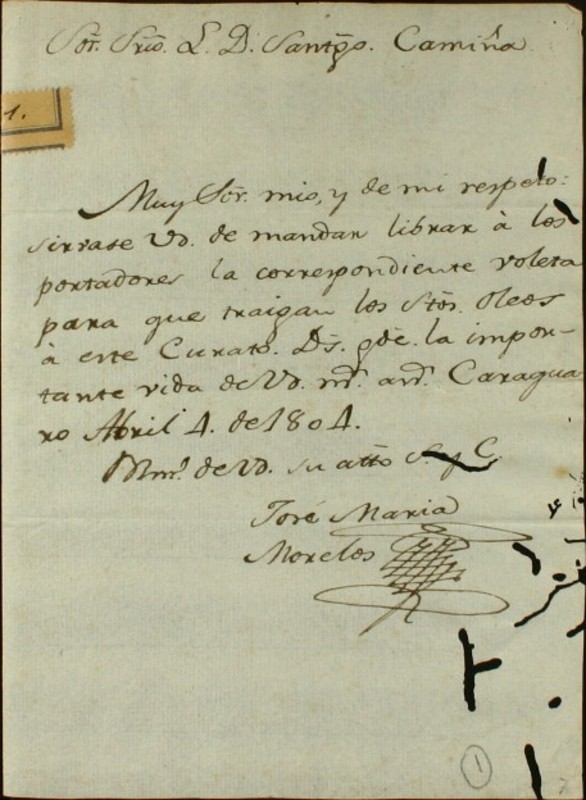 Sor. Srio. L. D. Santgo. Camiña
1.
Muy Sor. mio, y de mi respeto:
sirvase Vd. de mandar librar à los
portadores la correspondiente voleta
para que traigan los Stos. Oleos
à este Curato. Ds. gde. la impor-
tante vida de Vd. ms. as. Caragua
ro Abril 4. de 1804.
BLms. de Vd. su atto S. y C.
José Maria
Morelos
1